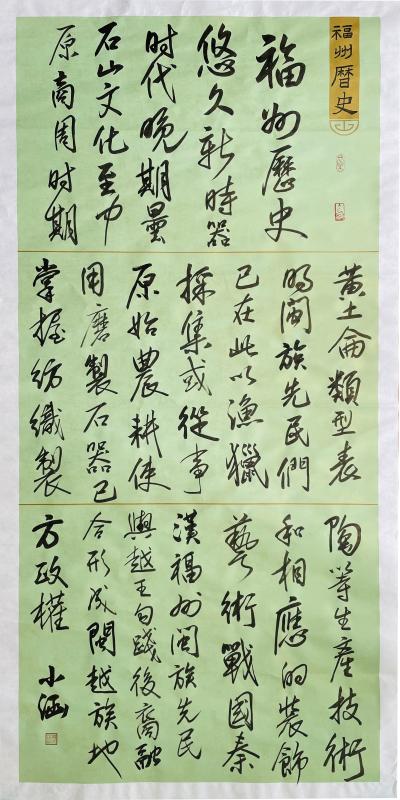 福州曆史
福州歷史
悠久新時器
时代晚期曇
石山文化至中
原商周时期
黄土侖類型表
明閩族先民們
已在此以渔獵
採集或從事
原始農耕使
用磨製石器已
掌握纺織製
陶等生産技術
和相應的裝飾
藝術戰國秦
漢福州閩族先民
與越王句踐後裔融
合形成閩越族地
方政權 小涵